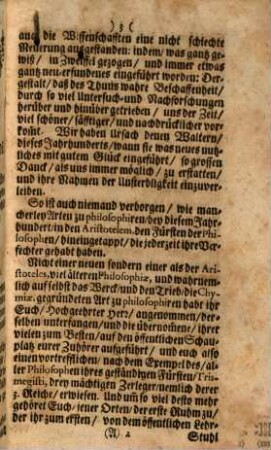 ) 3 (
auch die Wissenschafften eine nicht schlechte
Neuerung ausgestanden: indem / was gantz ge-
wiß / in Zweiffel gezogen / und immer etwas
gantz neu-erfundenes eingeführt worden: Der-
gestalt / daß des Thuns wahre Beschaffenheit /
durch so viel Untersuch- und Nachforschungen
herüber und hinüber getrieben / uns der Zeit /
viel schöner / säfftiger / und nachdrücklicher vor-
kom̃t. Wir haben Ursach denen Waltern /
dieses Jahrhunderts / wann sie was neues nutz-
liches mit gutem Glück eingeführt / so grossen
Danck / als uns immer möglich / zu erstatten /
und ihre Nahmen der Unsterbligkeit einzuver-
leiben.
So ist auch niemand verborgen / wie man-
cherley Arten zu philosophiren / bey diesem Jahr-
hundert / in den Aristotelem, den Fürsten der Phi-
losophen / hineingetappt / die jederzeit ihre Ver-
fechter gehabt haben.
Nicht einer neuen sondern einer als der Ari-
stoteles, viel ältern Philosophiæ, und wahrnem-
lich auf selbst das Werck und den Trieb / die Chy-
miæ, gegründeten Art zu philosophiren habt ihr
Euch / Hochgeehrter Herr / angenommen / der-
selben unterfangen / und die übernom̃e / ihrer
vielen zum Besten / auf den öffentlichen Schau-
platz eurer Zuhörer ausgeführt / und euch also
einen vortrefflichen / nach dem Exempel des / al-
ler Philosophen ihres geständigen Fürsten / Tris-
megisti, drey mächtigen Zerleger / nemlich derer
3. Reiche / erwiesen. Und um̃ so viel desto mehr
gehörel Euch / jener Orten / der erste Ruhm zu /
der ihr zum ersten / von dem öffentlichen Lehr-
(A) 2 Stuhl